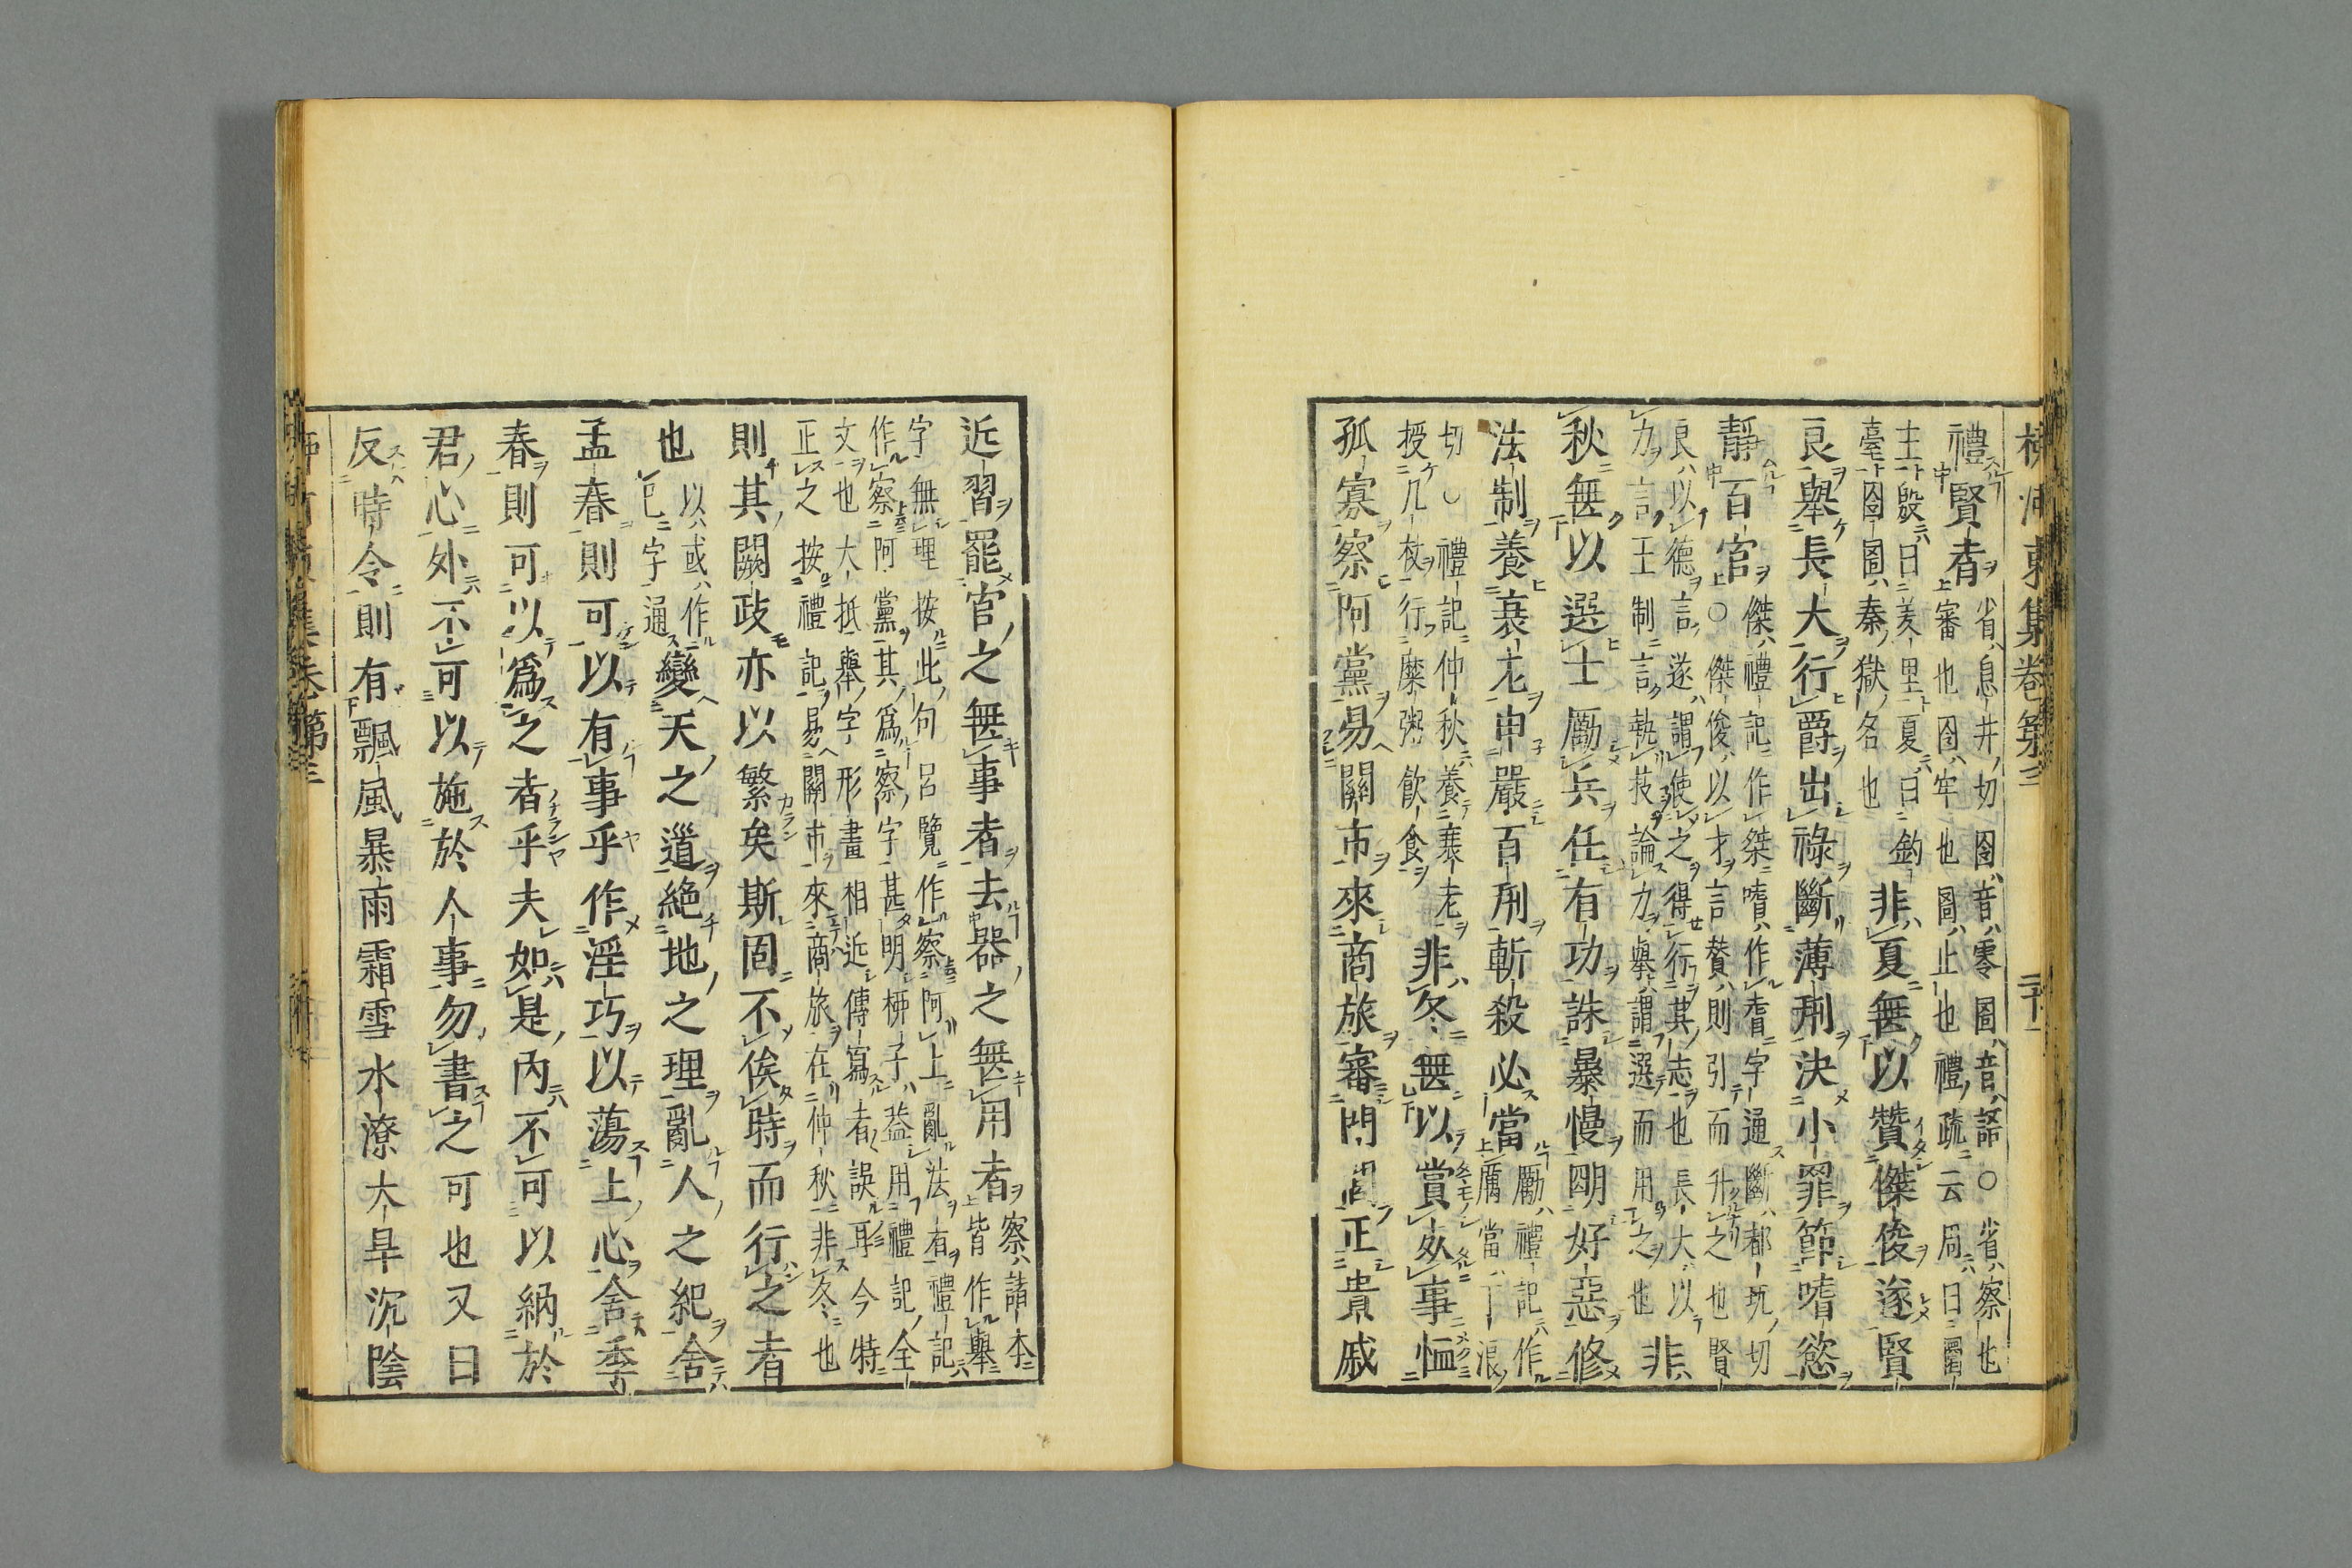 柳河東集卷第三　二十一
禮賢者
省息井切囹音零圄音語○省察也
審也囹牢也圄止也禮疏云周曰圜
土殷曰羑里夏曰鈞
臺囹圄秦獄名也
非夏無以贊傑俊遂賢
良舉長大行爵出祿斷薄刑決小罪節嗜慾
靜百官
傑禮記作桀嗜作耆字通斷都玩切
○傑俊以才言賛則引而升之也賢
良以德言遂謂使之得行其志也長大以
力言王制言執技論力舉謂選而用之也
非
秋無以選士勵兵任有功誅暴慢明好惡修
法制養衰老申嚴百刑斬殺必當
勵禮記作
厲當丁浪
切○禮記仲秋養衰老
授几杖行糜粥飲食
非冬無以賞死事恤
孤寡察阿黨易關市來商旅審門閭正貴戚
近習罷官之無事者去器之無用者
察諸本
皆作舉
字無理按此句呂覽作察阿上亂法有禮記
作察阿黨其爲察字甚明柳子益用禮記全
文也大抵舉字形畫相近傳寫者誤耳今特
正之按禮記易關市來商旅在仲秋非冬也
則其闕政亦以繁矣斯固不俟時而行之者
也
以或作
巳字通
變天之道絕地之理亂人之紀舍
孟春則可以有事乎作淫巧以蕩上心舍季
春則可以爲之者乎夫如是內不可以納於
君心外不可以施於人事勿書之可也又曰
反時令則有飄風暴雨霜雪水潦大旱沉陰